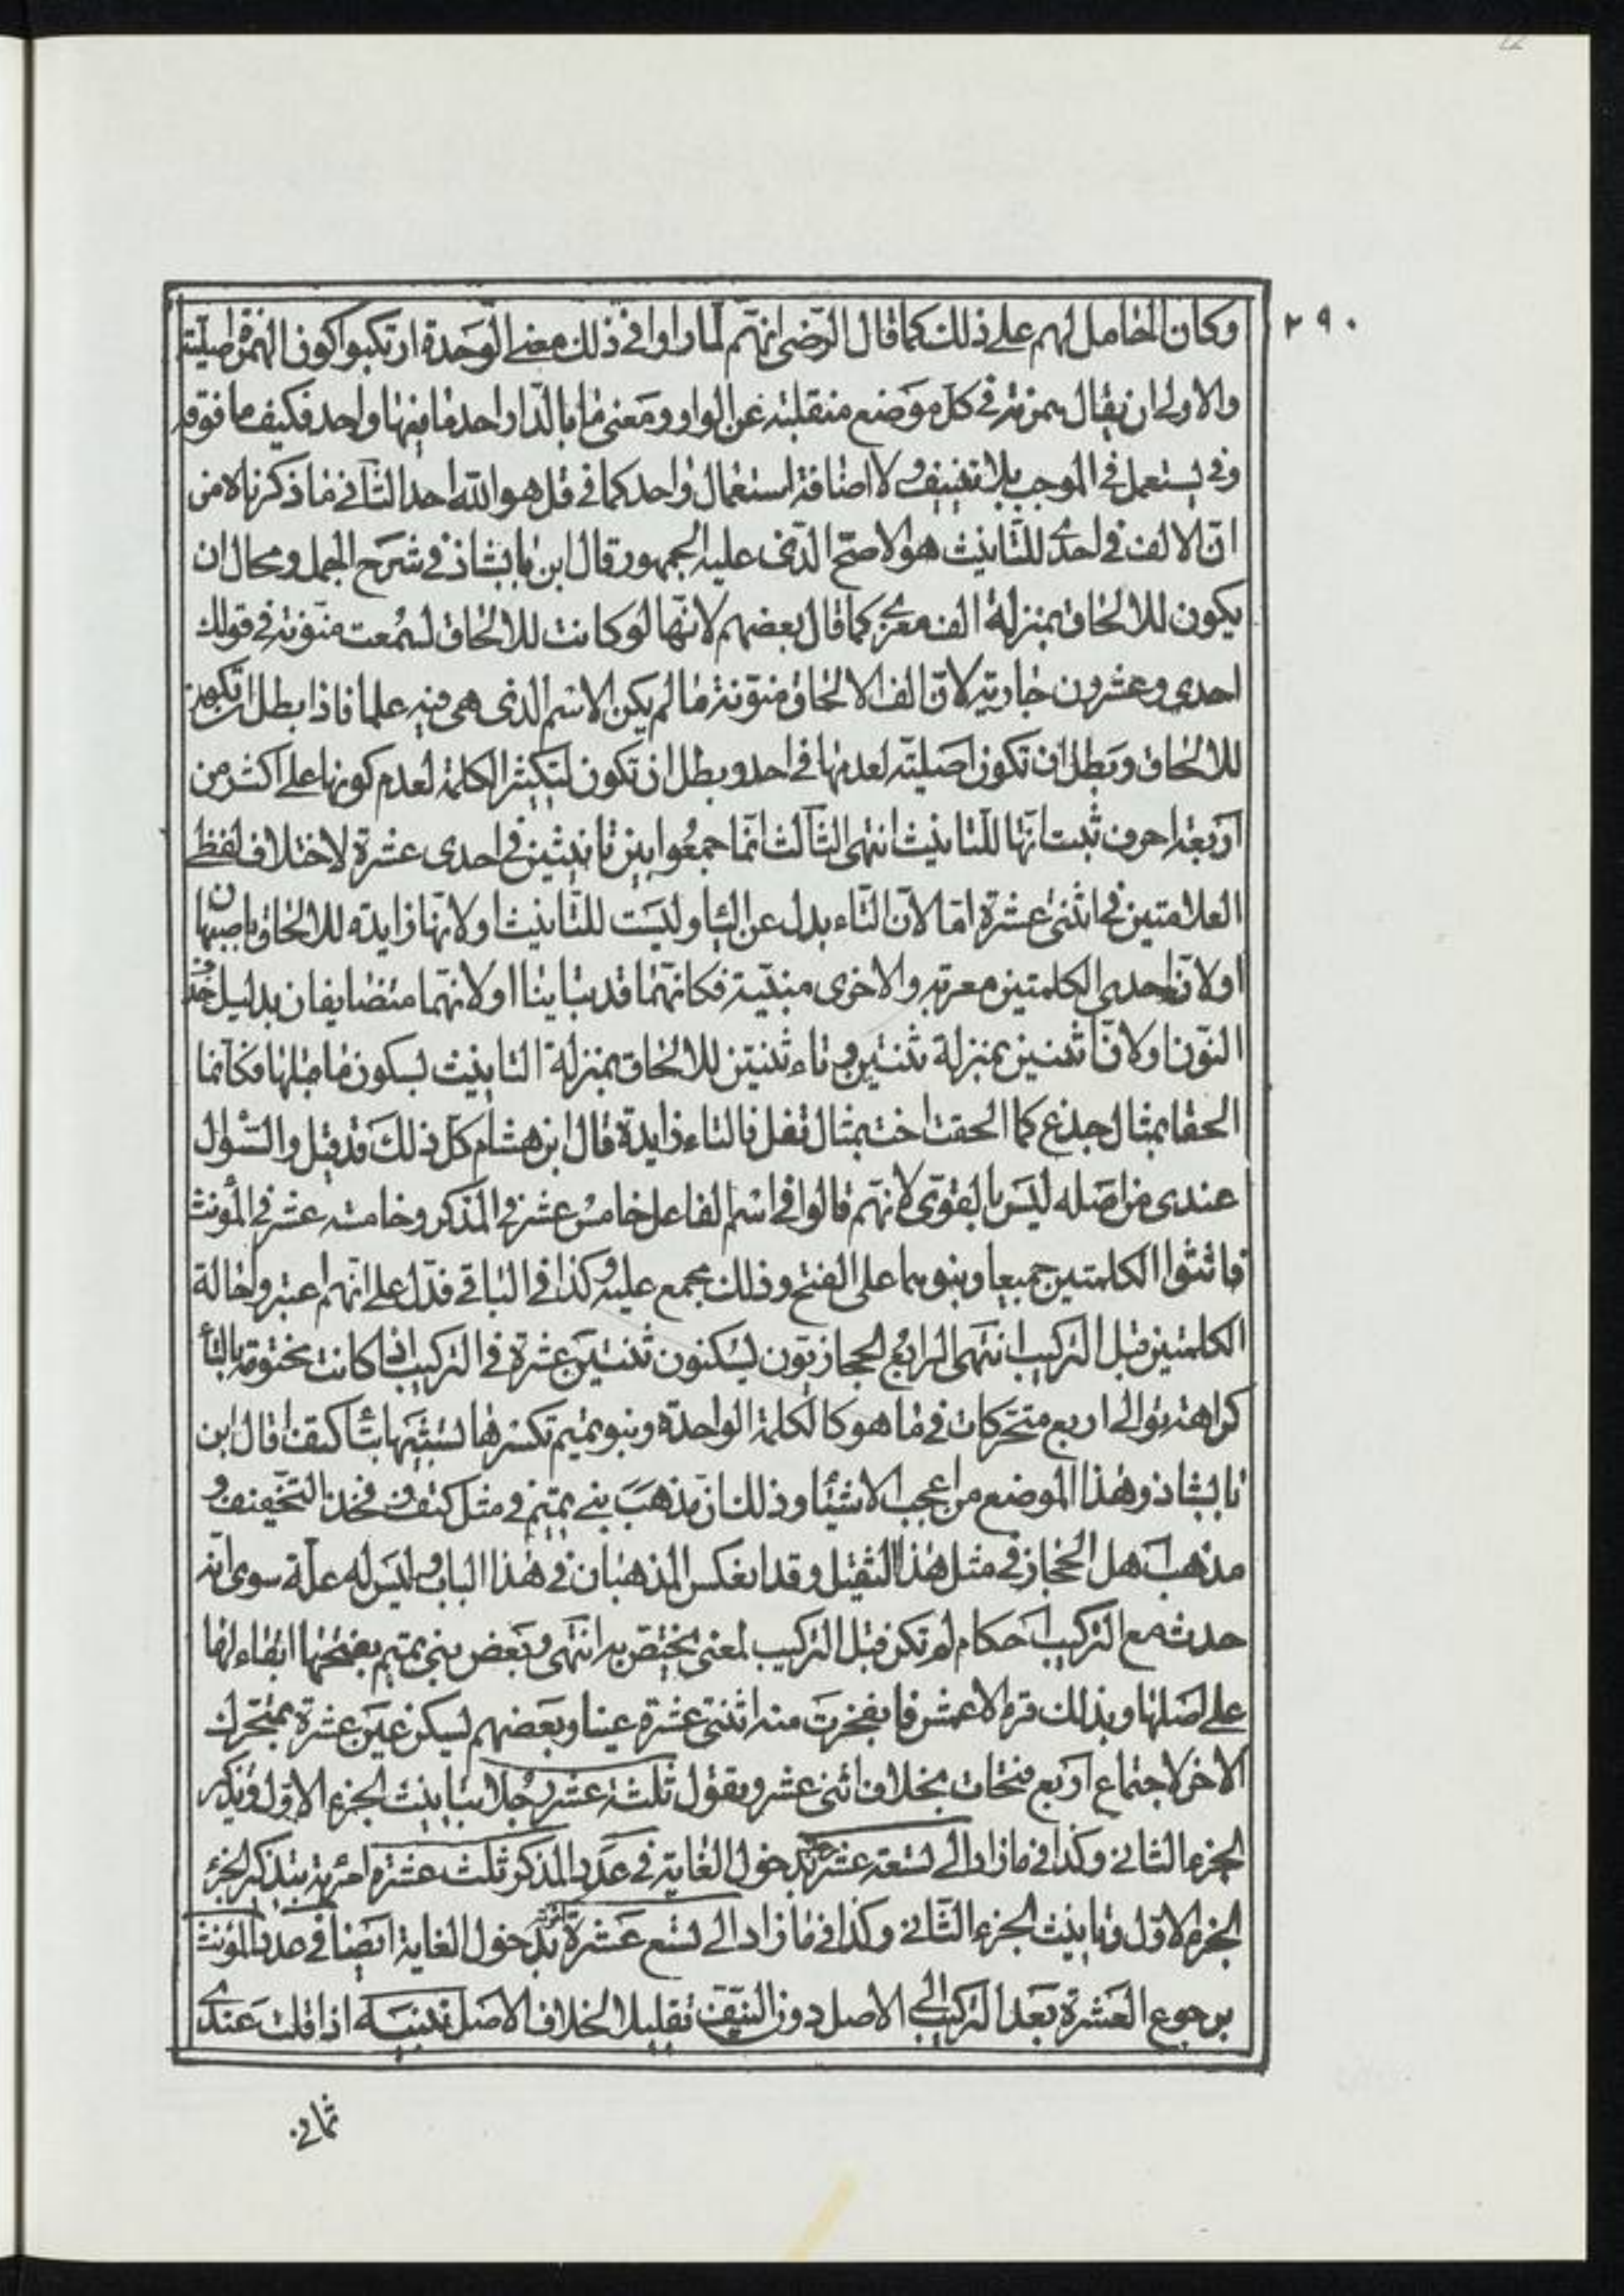 ٢٩٠
وكان الحامل لهم على ذلك كما قال الرضى انهم لما راوا في ذلك معنى الوحدة ارتكبوا كون الهمزة اصلية
والاولى ان يقال همزته في كل موضع منقلبة عن الواو ومعنى ما بالدار احد ما فيها واحد فكيف ما فوقه
وقد يستعمل في الموجب بلا تنييف ولا اضافة استعمال واحد كما في قل هو الله احد الثاني ما ذكرناه من
ان الالف في احدى للتانيث هو الاصح الذى عليه الجمهور قال ابن بابشاذ في شرح الجمل ومحال ان
يكون للالحاق بمنزلة الف معزى كما قال بعضهم لانها لو كانت للالحاق لسمعت منونة في قولك
احدى وعشرون جارية لان الف الالحاق منونة ما لم يكن الاسم الذى هى فيه علما فاذا بطل ان تكون
للالحاق وبطل ان تكون اصلية لعدمها في احد وبطل ان تكون لتكثير الكلمة لعدم كونها على اكثر من
اربعة احرف ثبت انها للتانيث انتهى الثالث انما جمعوا بين تانيثين في احدى عشرة لاختلاف لفظ
العلامتين في اثنتى عشرة اما لان التاء بدل عن الياء وليست للتانيث او لانها زايدة للالحاق باصبهان
او لان احدى الكلمتين معربة والاخرى مبنية فكانهما قد تباينا او لانهما متضايفان بدليل حذف
النون او لان ثنتين بمنزلة ثنتين وتاء ثنتين للالحاق بمنزلة التانيث لسكون ما قبلها فكانما
الحقا بمثال جذع كما الحقت اخت بمثال قفل فالتاء زايدة قال ابن هشام كل ذلك قد قيل والسؤال
عندى من اصله ليس بالقوى لانهم قالوا في اسم الفاعل خامس عشر في المذكر وخامسة عشر في المؤنث
فانثوا الكلمتين جميعا وبنوهما على الفتح وذلك مجمع عليه وكذا في الباقي فدل على انهم اعتبروا حالة
الكلمتين قبل التركيب انتهى الرابع الحجازيون يسكنون ثنتين عشرة في التركيب اذا كانت مختومة بالتا
كراهة توالى اربع متحركات في ما هو كالكلمة الواحدة وبنو تميم تكسرها تشبيها بتا كتف قال ابن
بابشاذ وهذا الموضع من اعجب الاشيا وذلك ان مذهب بنى تميم في مثل كتف وفخذ التخفيف و
مذهب اهل الحجاز في مثل هذا التثقيل وقد انعكس المذهبان في هذا الباب وليس له علة سوى انه
حدث مع التركيب احكام لم تكن قبل التركيب لمعنى يختص به انتهى وبعض بنى تميم بفتحها ابقاء لها
على اصلها وبذلك قرء الاعمش فانفجرت منه اثنتى عشرة عينا وبعضهم يسكن عين عشرة بمتحرك
الاخر لاجتماع اربع فتحات بخلاف اثنى عشر ويقول ثلثة عشر رجلا بتانيث الجزء الاول وتذكير
الجزء الثاني وكذا في ما زاد الى تسعة عشر بدخول الغاية في عدد المذكر ثلث عشرة امرءة بتذكير الجزء
الجزء الاول وتانيث الجزء الثاني وكذا في ما زاد الى تسع عشرة بدخول الغاية ايضا في عدد المؤنث
برجوع العشرة بعد التركيب الى الاصل دون النيف تقليلا لخلاف الاصل تنبيه اذا قلت عندى
ثمانى